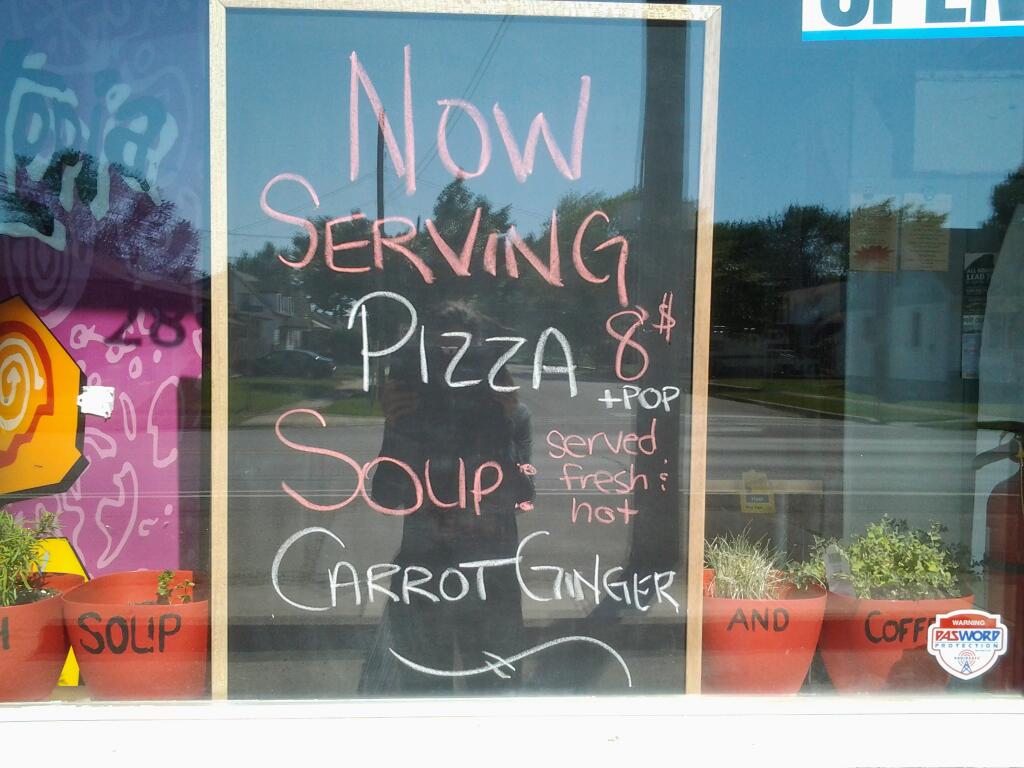 OPEN
NOW
SERVING
PIZZA 8$
+POP
SOUP: served
fresh &
hot
CARROT GINGER
28
SOUP
AND
COFF
WARNING
PASWORD
PROTECTION